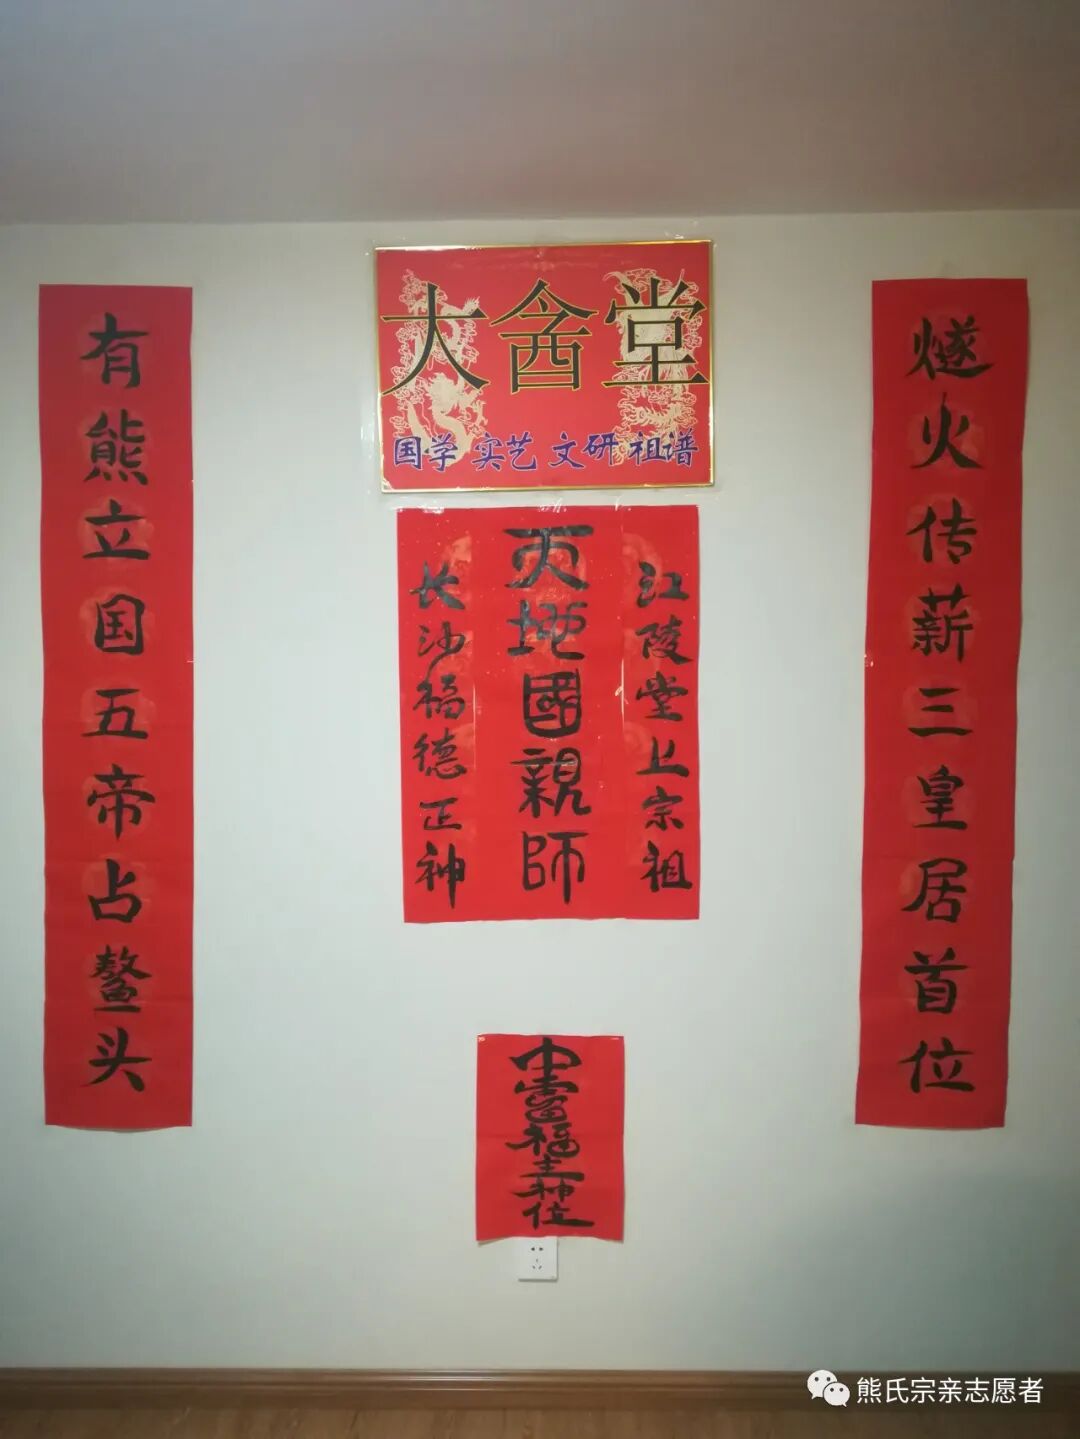 大酓堂
国学 实艺 文研 祖谱
燧火传薪三皇居首位
有熊立国五帝占鳌头
江陵堂上宗祖
天地國親師
长沙福德正神
中霤福主神位
熊氏宗亲志愿者